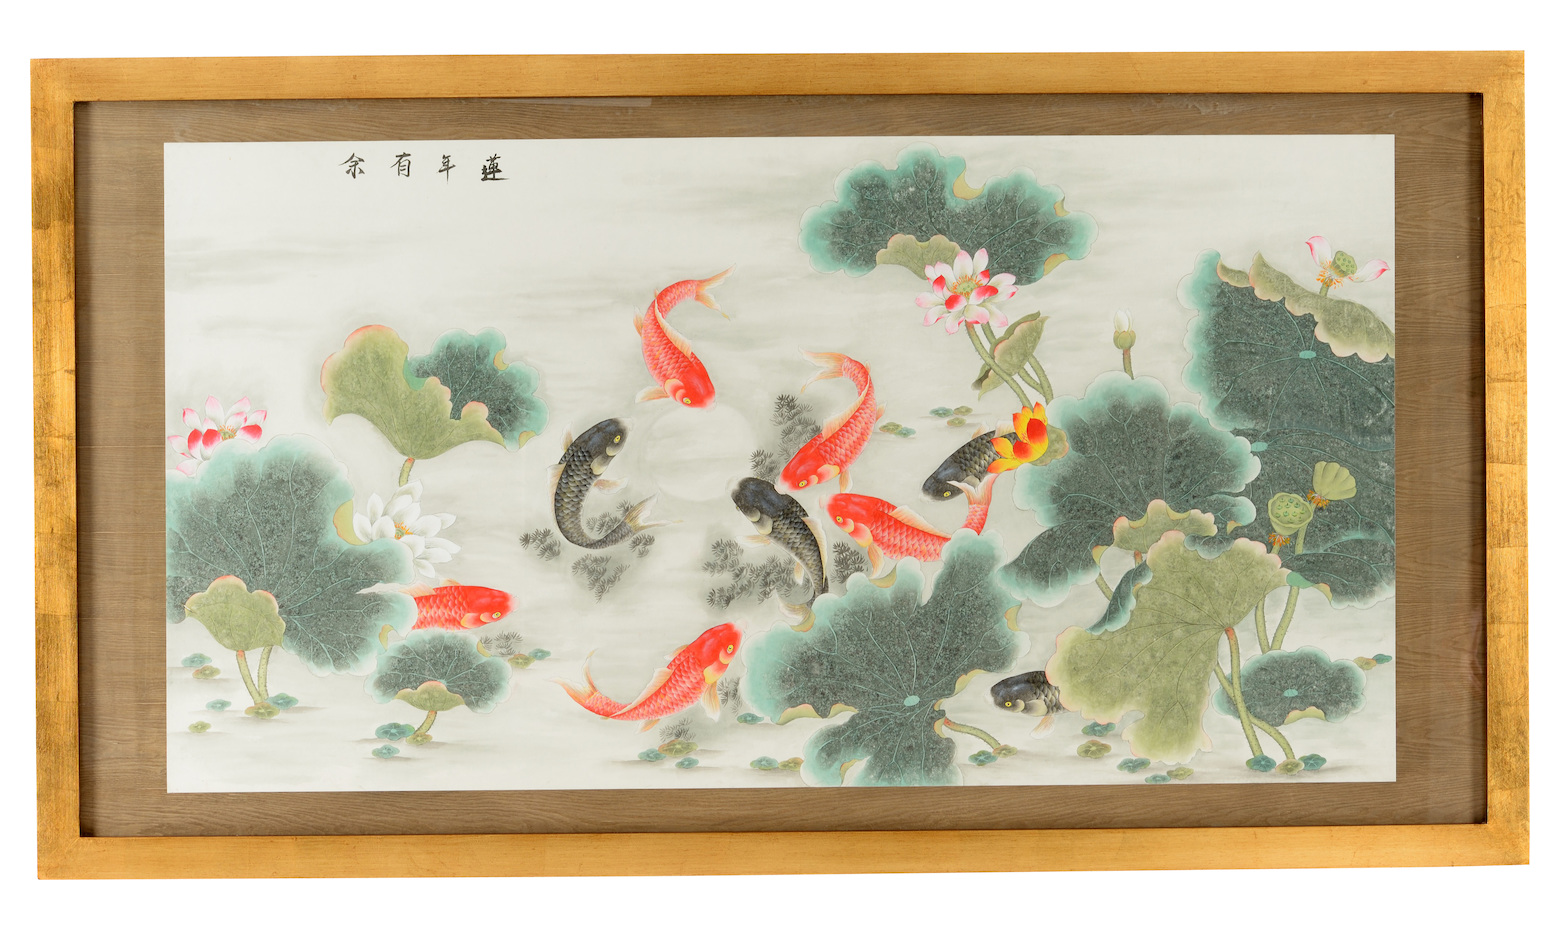 蓮年有余